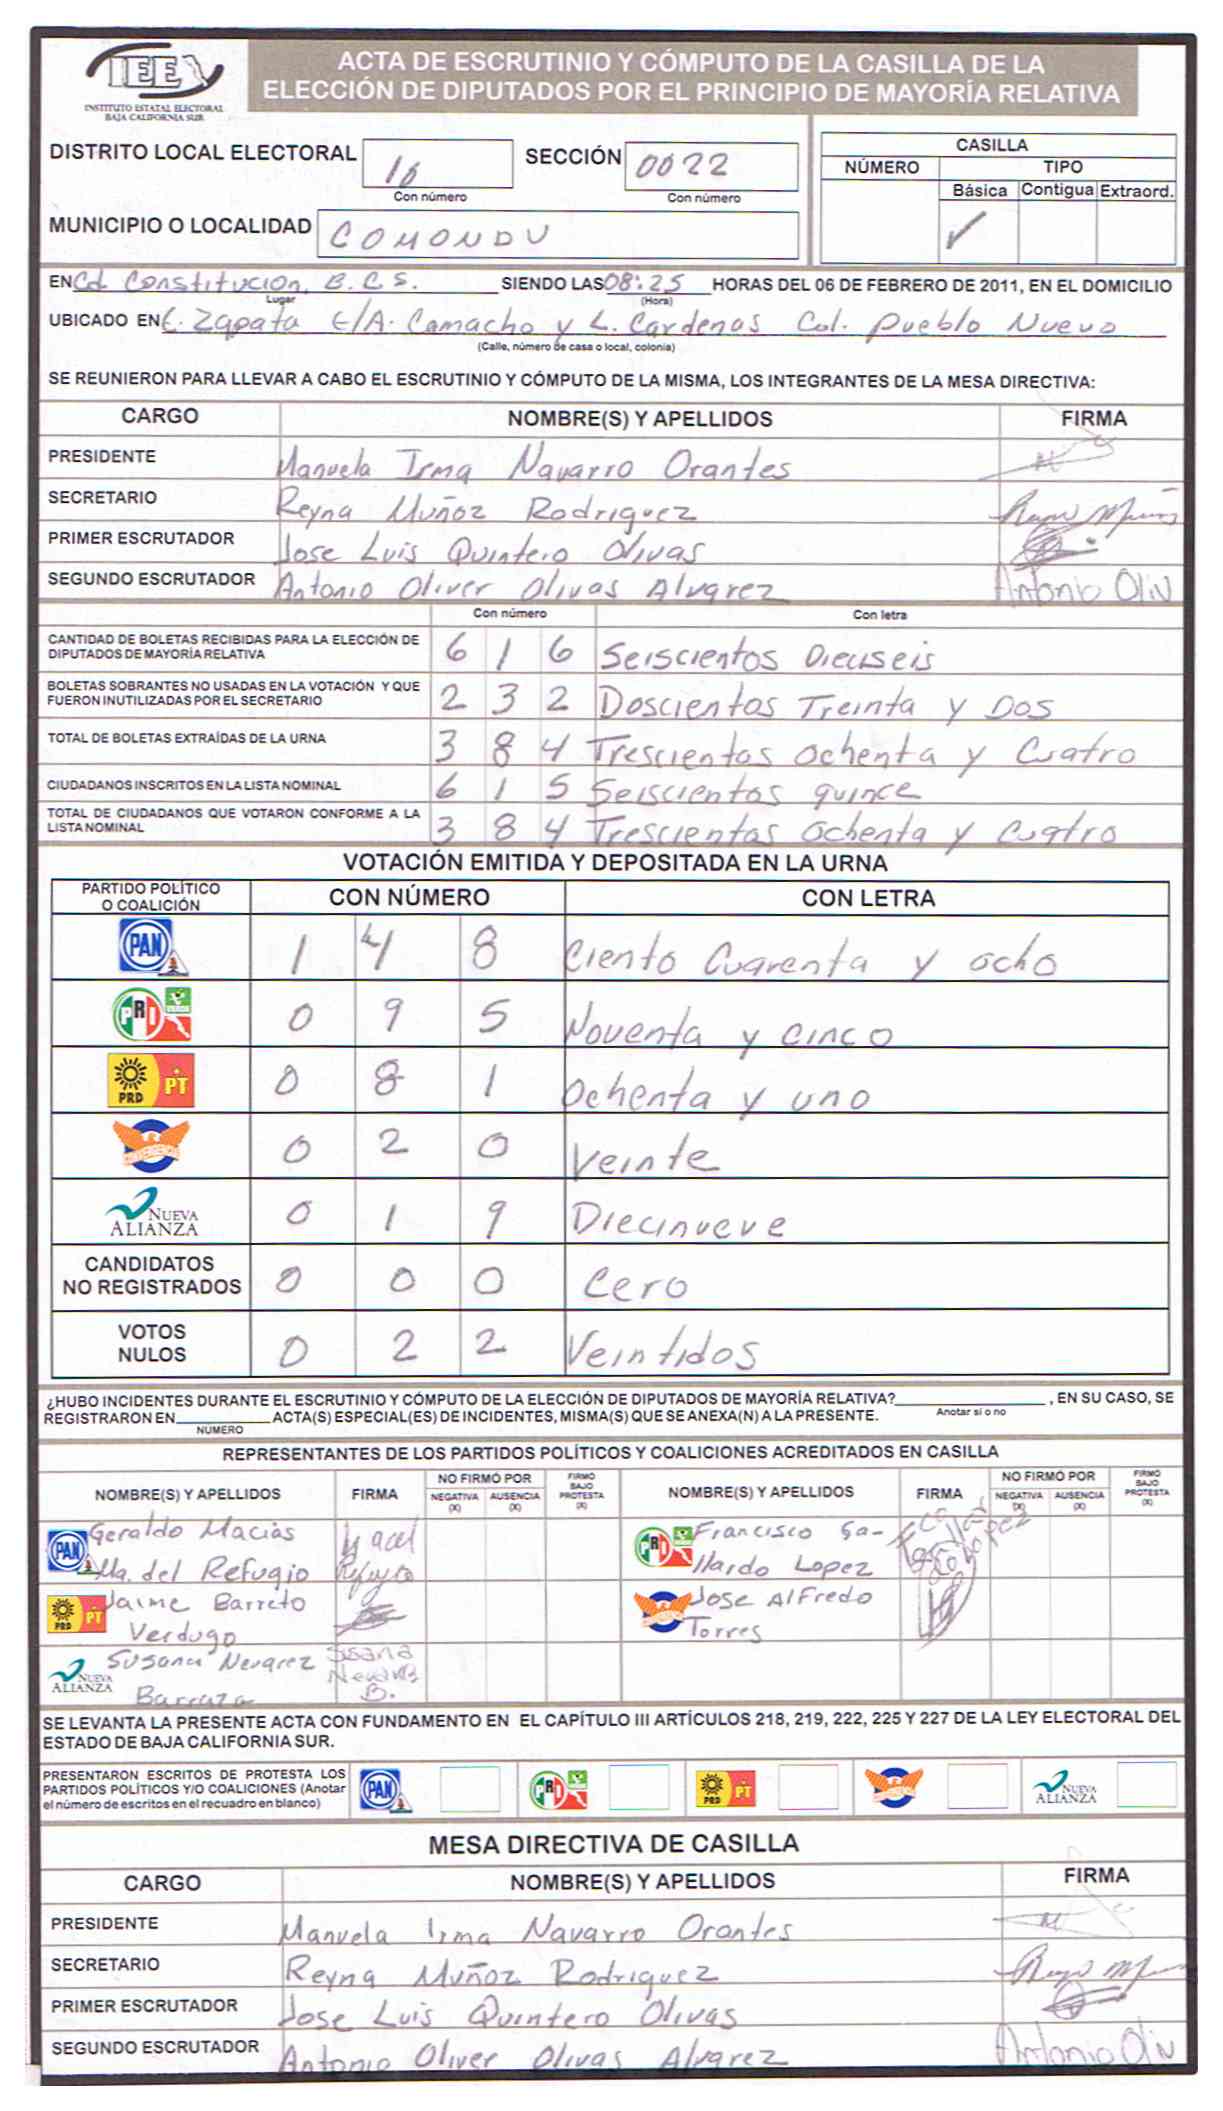 IEEBCS
INSTITUTO ESTATAL ELECTORAL
BAJA CALIFORNIA SUR
ACTA DE ESCRUTINIO Y CÓMPUTO DE LA CASILLA DE LA
ELECCIÓN DE DIPUTADOS POR EL PRINCIPIO DE MAYORÍA RELATIVA
DISTRITO LOCAL ELECTORAL 16 SECCIÓN 0022
Con número Con número
MUNICIPIO O LOCALIDAD COMONDU
CASILLA
NÚMERO TIPO
Básica Contigua Extraord.
✓
EN Cd. Constitucion, B.C.S. SIENDO LAS 08:25 HORAS DEL 06 DE FEBRERO DE 2011, EN EL DOMICILIO
Lugar (Hora)
UBICADO EN E. Zapata E/A. Camacho y L. Cardenas Col. Pueblo Nuevo
(Calle, número de casa o local, colonia)
SE REUNIERON PARA LLEVAR A CABO EL ESCRUTINIO Y CÓMPUTO DE LA MISMA, LOS INTEGRANTES DE LA MESA DIRECTIVA:
CARGO NOMBRE(S) Y APELLIDOS FIRMA
PRESIDENTE Manuela Irma Navarro Orantes
SECRETARIO Reyna Muñoz Rodriguez
PRIMER ESCRUTADOR Jose Luis Quintero Olivas
SEGUNDO ESCRUTADOR Antonio Oliver Olivas Alvarez Antonio Oliv
Con número Con letra
CANTIDAD DE BOLETAS RECIBIDAS PARA LA ELECCIÓN DE
DIPUTADOS DE MAYORÍA RELATIVA 6 1 6 Seiscientos Dieciseis
BOLETAS SOBRANTES NO USADAS EN LA VOTACIÓN Y QUE
FUERON INUTILIZADAS POR EL SECRETARIO 2 3 2 Doscientos Treinta y Dos
TOTAL DE BOLETAS EXTRAÍDAS DE LA URNA 3 8 4 Trescientos Ochenta y Cuatro
CIUDADANOS INSCRITOS EN LA LISTA NOMINAL 6 1 5 Seiscientos quince
TOTAL DE CIUDADANOS QUE VOTARON CONFORME A LA
LISTA NOMINAL 3 8 4 Trescientos Ochenta y Cuatro
VOTACIÓN EMITIDA Y DEPOSITADA EN LA URNA
PARTIDO POLÍTICO
O COALICIÓN CON NÚMERO CON LETRA
PAN 1 4 8 Ciento Cuarenta y ocho
PRI VERDE 0 9 5 Noventa y cinco
PRD PT 0 8 1 Ochenta y uno
CONVERGENCIA 0 2 0 Veinte
NUEVA ALIANZA 0 1 9 Diecinueve
CANDIDATOS
NO REGISTRADOS 0 0 0 Cero
VOTOS
NULOS 0 2 2 Veintidos
¿HUBO INCIDENTES DURANTE EL ESCRUTINIO Y CÓMPUTO DE LA ELECCIÓN DE DIPUTADOS DE MAYORÍA RELATIVA? , EN SU CASO, SE
Anotar si o no
REGISTRARON EN ACTA(S) ESPECIAL(ES) DE INCIDENTES, MISMA(S) QUE SE ANEXA(N) A LA PRESENTE.
NÚMERO
REPRESENTANTES DE LOS PARTIDOS POLÍTICOS Y COALICIONES ACREDITADOS EN CASILLA
NOMBRE(S) Y APELLIDOS FIRMA NO FIRMÓ POR NEGATIVA (X) AUSENCIA (X) FIRMÓ BAJO PROTESTA (X) NOMBRE(S) Y APELLIDOS FIRMA NO FIRMÓ POR NEGATIVA (X) AUSENCIA (X) FIRMÓ BAJO PROTESTA (X)
PAN Geraldo Macias PRI Francisco Ga-
Ma. del Refugio llardo Lopez
PRD PT Jaime Barreto Jose Alfredo
Verdugo Torres
NUEVA ALIANZA Susana Nevarez Susana
Barraza Nevarez B.
SE LEVANTA LA PRESENTE ACTA CON FUNDAMENTO EN EL CAPÍTULO III ARTÍCULOS 218, 219, 222, 225 Y 227 DE LA LEY ELECTORAL DEL
ESTADO DE BAJA CALIFORNIA SUR.
PRESENTARON ESCRITOS DE PROTESTA LOS
PARTIDOS POLÍTICOS Y/O COALICIONES (Anotar
el número de escritos en el recuadro en blanco) PAN PRI PRD PT NUEVA ALIANZA
MESA DIRECTIVA DE CASILLA
CARGO NOMBRE(S) Y APELLIDOS FIRMA
PRESIDENTE Manuela Irma Navarro Orantes
SECRETARIO Reyna Muñoz Rodriguez
PRIMER ESCRUTADOR Jose Luis Quintero Olivas
SEGUNDO ESCRUTADOR Antonio Oliver Olivas Alvarez Antonio Oliv